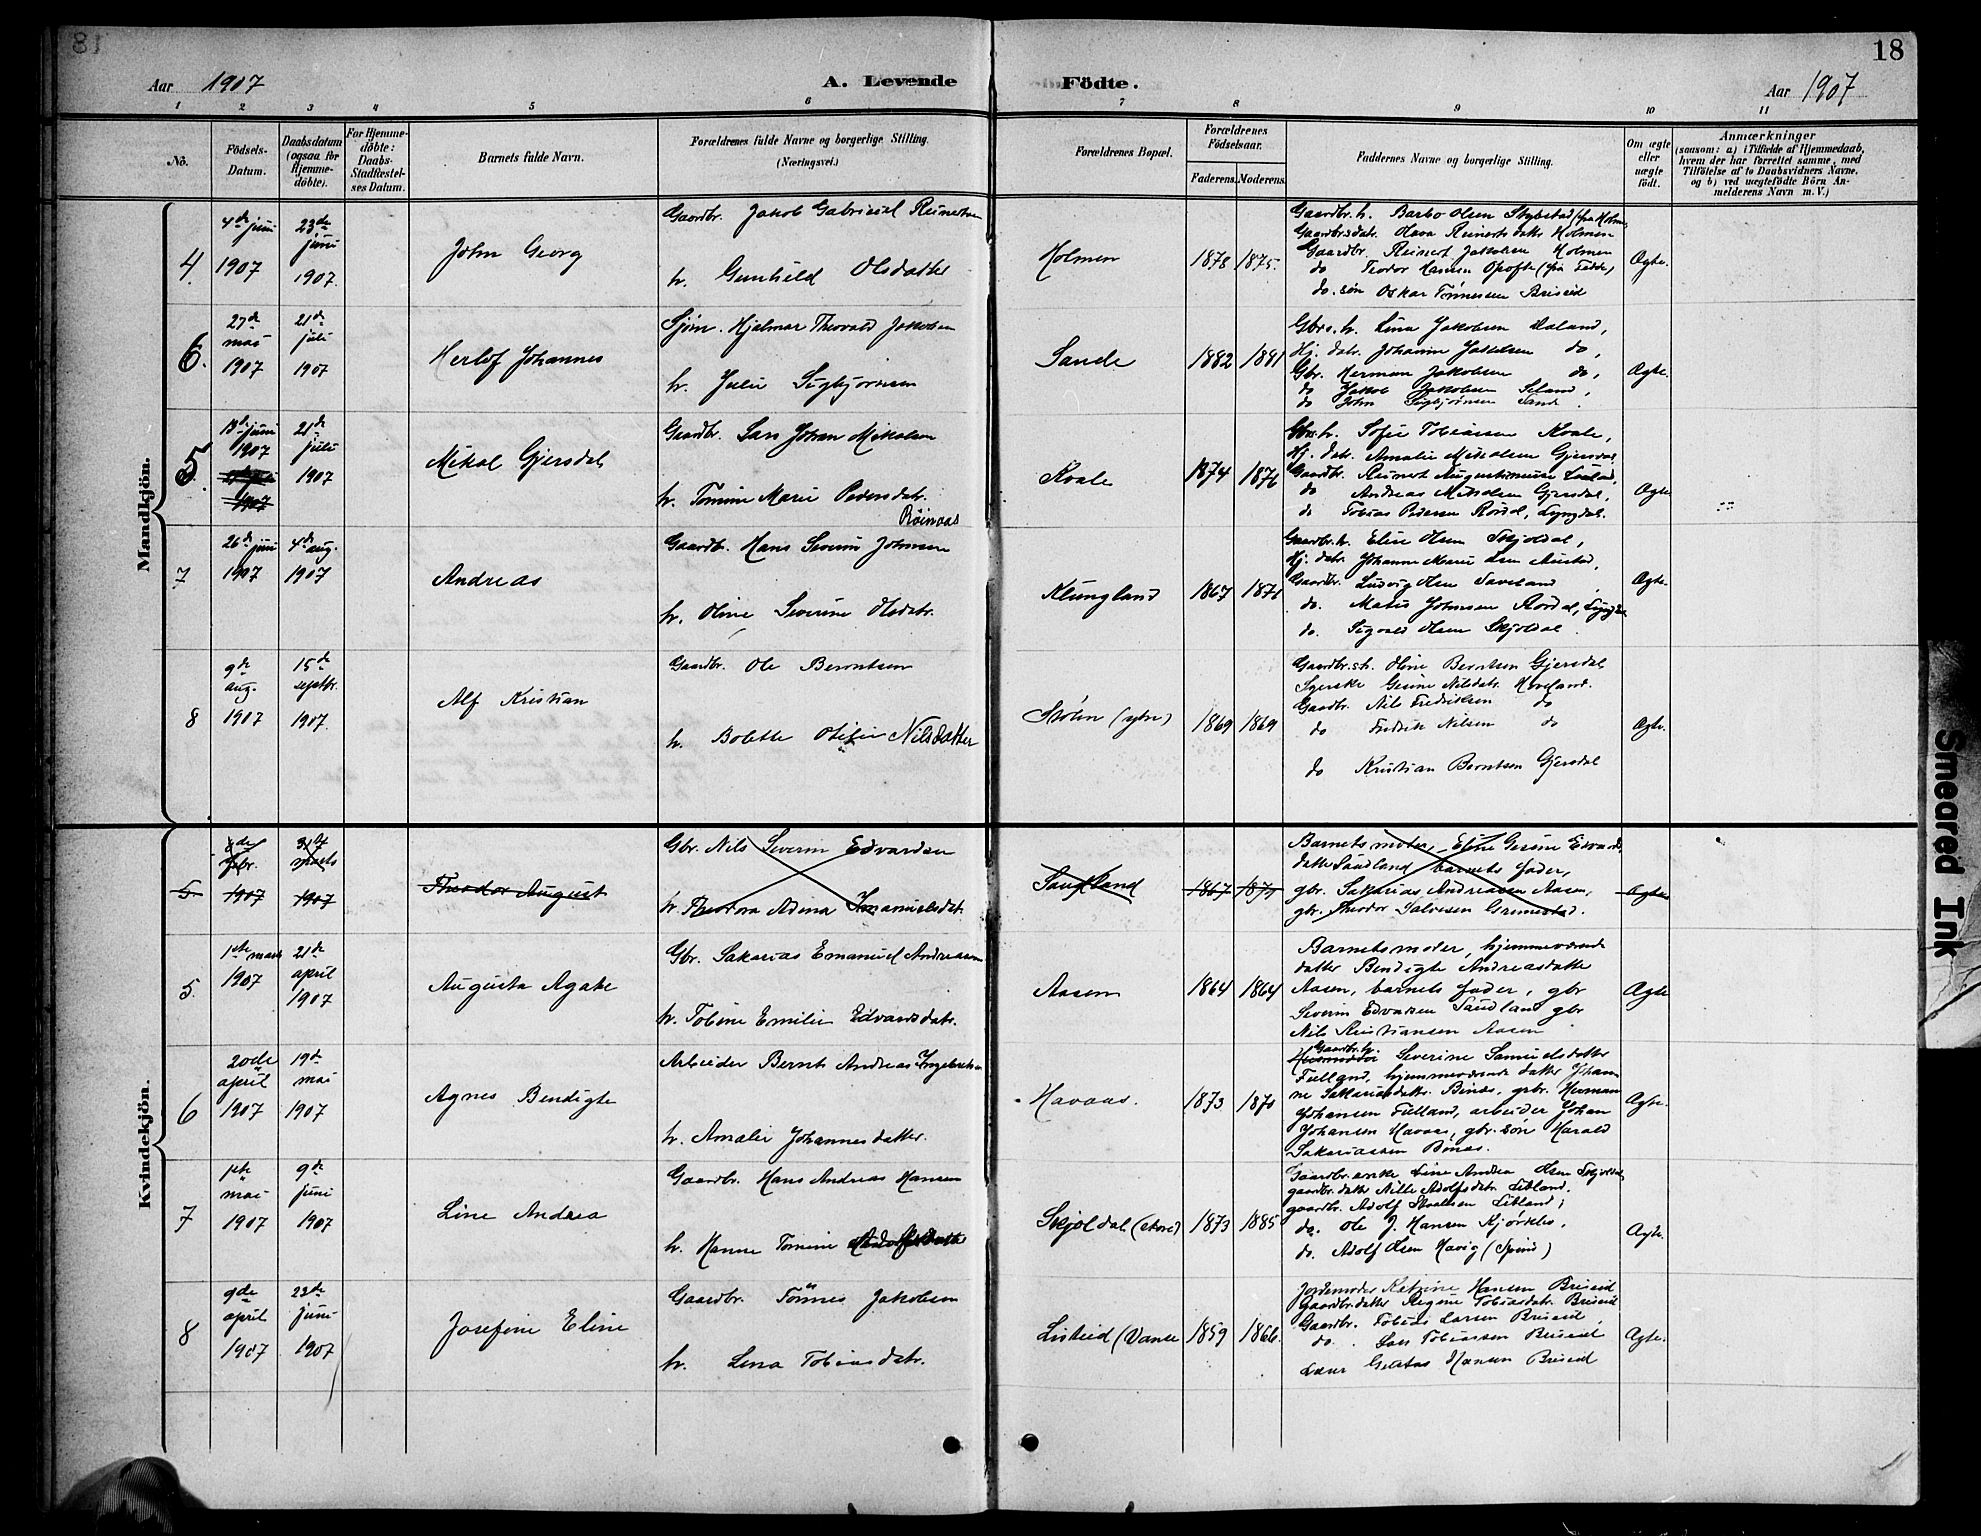 18
Aar 1907
A. Levende Födte.
Aar 1907
1 2 3 4 5 6 7 8 9 10 11
No.
Födsels-
Datum.
Daabsdatum
(ogsaa for
Hjemme-
döbte).
For Hjemme-
döbte:
Daabs-
Stadfæstel-
ses Datum.
Barnets fulde Navn.
Forældrenes fulde Navne og borgerlige Stilling.
(Næringsvei.)
Forældrenes Bopæl.
Forældrenes
Födselsaar.
Faderens. Moderens.
Faddernes Navne og borgerlige Stilling.
Om ægte
eller
uægte
födt.
Anmærkninger
(saasom: a) i Tilfælde af Hjemmedaab,
hvem der har forrettet samme, med
Tilföielse af to Daabsvidners Navne.
og b) ved uægtefödte Börn An-
melderens Navn m. V.)
Mandkjön.
4.
4de juni
1907
23de
juni
1907.
John Georg
Gaardbr. Jakob Gabriel Reinertsen
h. Gunhild Olsdatter
Holmen
1878 1875.
Gaardbr. h. Barbo Olsen Skybstad (fra Holmen
Gaardbrsdatr. Olava Reinertsdatter Holmen
Gaardbr. Reinert Jakobsen Holmen
do Teodor Hansen Opofte (fra Fedde)
do. søn Oskar Tønnessen Briseid
Ægte.
6.
27de
mai
1907
21de
juli
1907
Herlof Johannes
Sjøm. Hjalmar Theovald Jakobsen
h. Julie Sigbjørnsen
Sande
1882 1881
Gbrs. h. Lina Jakobsen Haland,
Hj. datr. Johanne Jakobsen do,
Gbr. Herman Jakobsen do,
do Jakob Jakobsen Seland,
do John Sigbjørnsen Sande.
Ægte.
5.
13de juni
1907
1907
21de
juli
1907
Mikal Gjersdal
Gaardbr. Lars Johan Mikalsen
h. Tomine Marie Pedersdatr.
Röinaas
Kvale
1874 1876
Gbrs. h. Sofie Tobiassen Kvale,
Hj. datr. Amalie Mikalsen Gjersdal
Gaardbr. Reinert Augustinussen
do Andreas Mikalsen Gjersdal,
do Tobias Pedersen Rørdal, Lyngdal.
Ægte
7
26de juni
1907
4de aug.
1907
Andreas
Gaardb. Hans Severin Johnsen
h. Oline Severine Olsdatr.
Klungland
1867 1871
Gaardbr. h. Elise Olsen Skjoldal,
Hj. datr. Johanne Marie
Gaardbr. Ludvig Olsen
do. Matis Johnsen Rørdal, Lyngdal
do. Sigvald Olsen Skjoldal.
Ægte.
8
9de
aug.
1907
15de
septbr.
1907.
Alf Kristian
Gaardbr. Ole Berntsen
h. Bolette Otilie Nilsdatter
Stölen (ytre)
1869 1869
Gaardbr. h. Oline Berntsen Gjersdal
Syerske Gesine Nilsdatr. Hoveland.
Gaardbr. Nils Fredriksen do
do Fredrik Nilsen do
do Kristian Berntsen Gjersdal
Ægte.
Kvindekjön.
5
febr.
1907
31te
marts
1907
Theodor August
Gbr. Nils Severin Edvardsen
h. Theodora Adina Imanuelsdatr.
Saudland
1867 1879
Barnets moder, Eline Gesine Edvards
datter Saudland barnets fader,
gbr. Sakarias Andreassen Aasen,
gbr. Theodor Salvesen Grimestad.
Ægte
5.
1ste mars
1907
21de
april
1907
Augusta Agate
Gbr. Sakarias Emanuel Andreassen
h. Tobine Emilie Edvardsdatr.
Aasen
1864 1864
Barnets moder, hjemmeværende
datter Bendigte Andreasdatter
Aasen, barnets fader, gbr
Severin Edvardsen Saudland gbr
Nils Kristiansen Aasen
Ægte
6
20de
april
1907
19de
mai
1907
Agnes Bendigte
Arbeider Bernt Andreas Ingebretsen
h. Amalie Johannesdatter.
Havaas.
1873 1870
Gaardbr. h.
Severine Samuelsdatter
Fulland, hjemmeværende datter Johan-
ne Sakariasdatter Bønæs, gbr. Herman
Johansen Fulland, arbeider Johan
Johansen Havaas, gbr. søn Harald
Sakariassen Bønæs.
Ægte.
7
1ste
mai
1907
9de
juni
1907
Line Andrea
Gaardbr. Hans Andreas Hansen
h. Hanne Tomine
Skjoldal (store)
1873 1885
Gaardbr. enke Line Andrea Olsen Skjoldal
gaardbr. datter Nille Adolfsdatr. Eitland.
gaardbr. Adolf Eitland;
do. Ole J. Hansen Kjørkleiv,
do. Adolf Olsen Havig (Spind)
Ægte.
8
9de
april
1907
23de
juni
1907
Josefine Eline
Gaardbr. Tönnes Jakobsen
h. Lena Tobiasdatr.
Listeid (Vanse
1859 1866.
Jordemoder Katrine Hansen Briseid
Gaardbr. datter Regine Tobiasdatr. Briseid
Gaardbr. Tobias Larsen Briseid,
do. Lars Tobiassen Briseid
Hansen Briseid
Ægte.
Smeared Ink